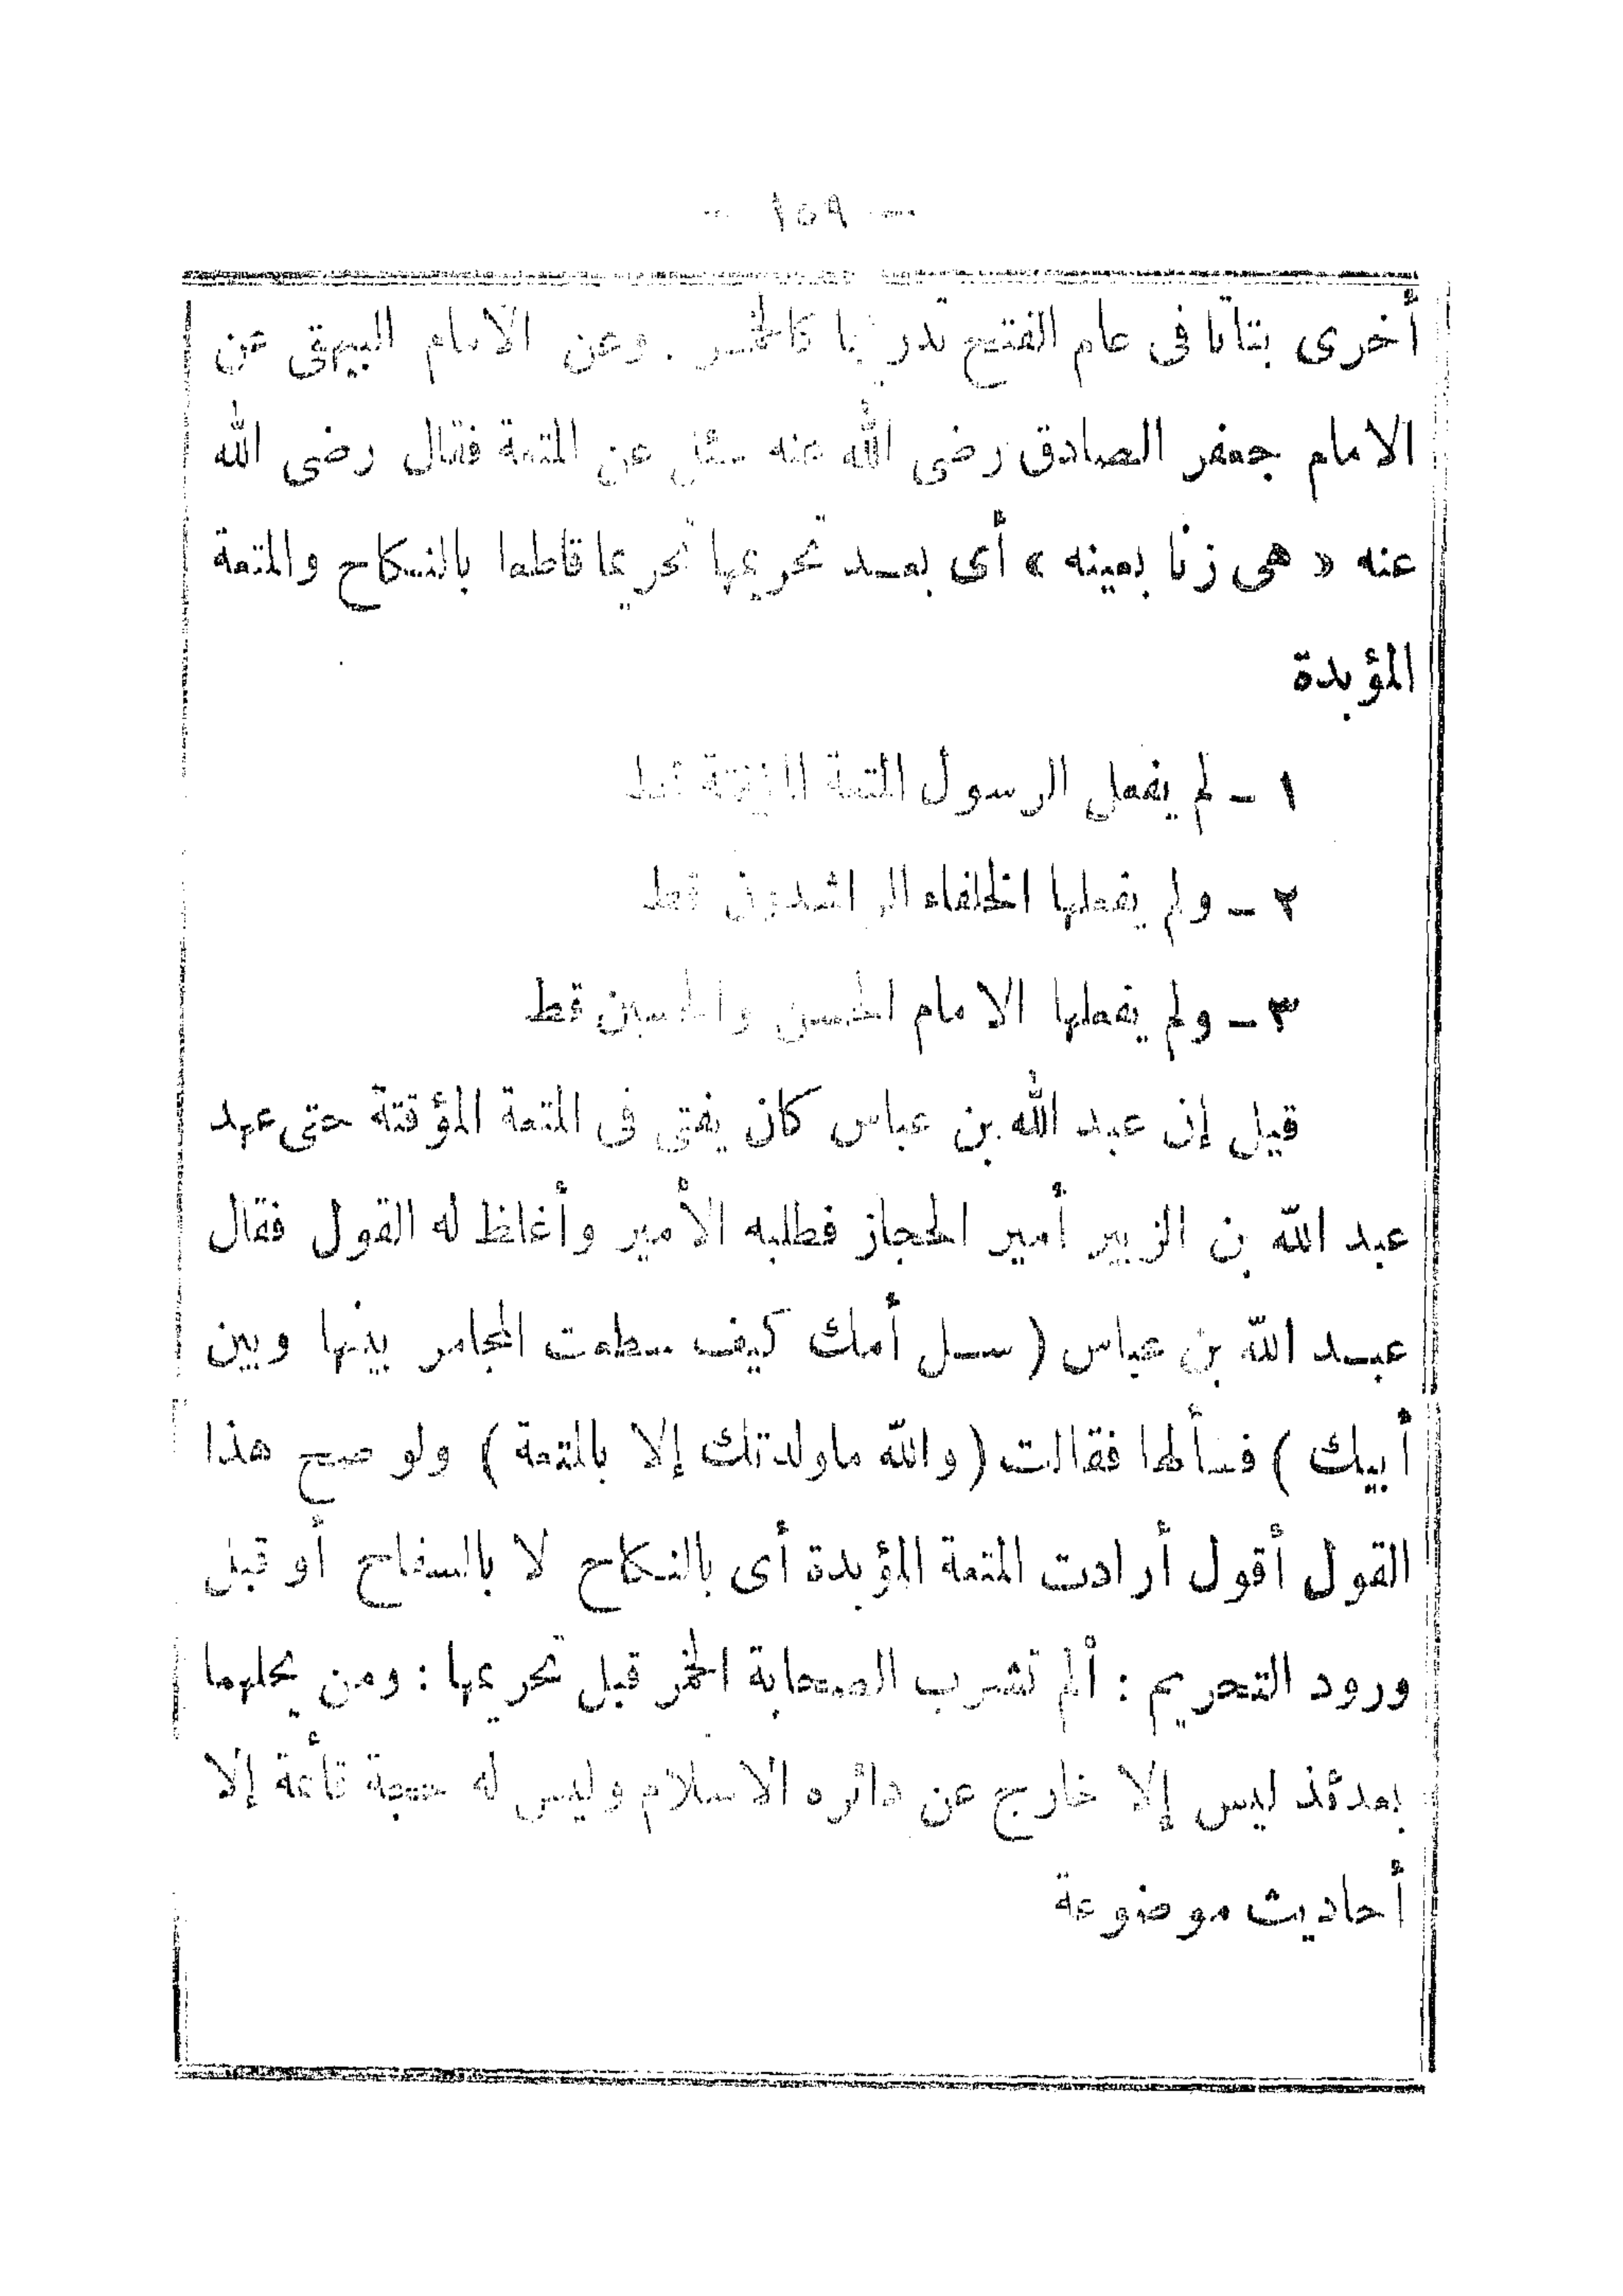 — ١٥٩ —
أخرى بتاتا فى عام الفتح تدريجيا كالخمر . وعن الامام البيهقى عن
الامام جعفر الصادق رضى الله عنه سئل عن المتعة فقال رضى الله
عنه « هى زنا بعينه » أى بعد تحريمها تحريما قاطعا بالنكاح والمتعة
المؤبدة
١ – لم يفعل الرسول المتعة المؤقتة قط
٢ – ولم يفعلها الخلفاء الراشدون قط
٣ – ولم يفعلها الامام الحسن والحسين قط
قيل إن عبد الله بن عباس كان يفتى فى المتعة المؤقتة حتى عهد
عبد الله بن الزبير أمير الحجاز فطلبه الأمير وأغلظ له القول فقال
عبد الله بن عباس ( سل أمك كيف سطعت المجامر بينها وبين
أبيك ) فسألها فقالت ( والله ماولدتك إلا بالمتعة ) ولو صح هذا
القول أقول أرادت المتعة المؤبدة أى بالنكاح لا بالسفاح أو قبل
ورود التحريم : ألم تشرب الصحابة الخمر قبل تحريمها : ومن يحلهما
بعدئذ ليس إلا خارج عن دائره الاسلام وليس له حجة قائمة إلا
أحاديث موضوعة